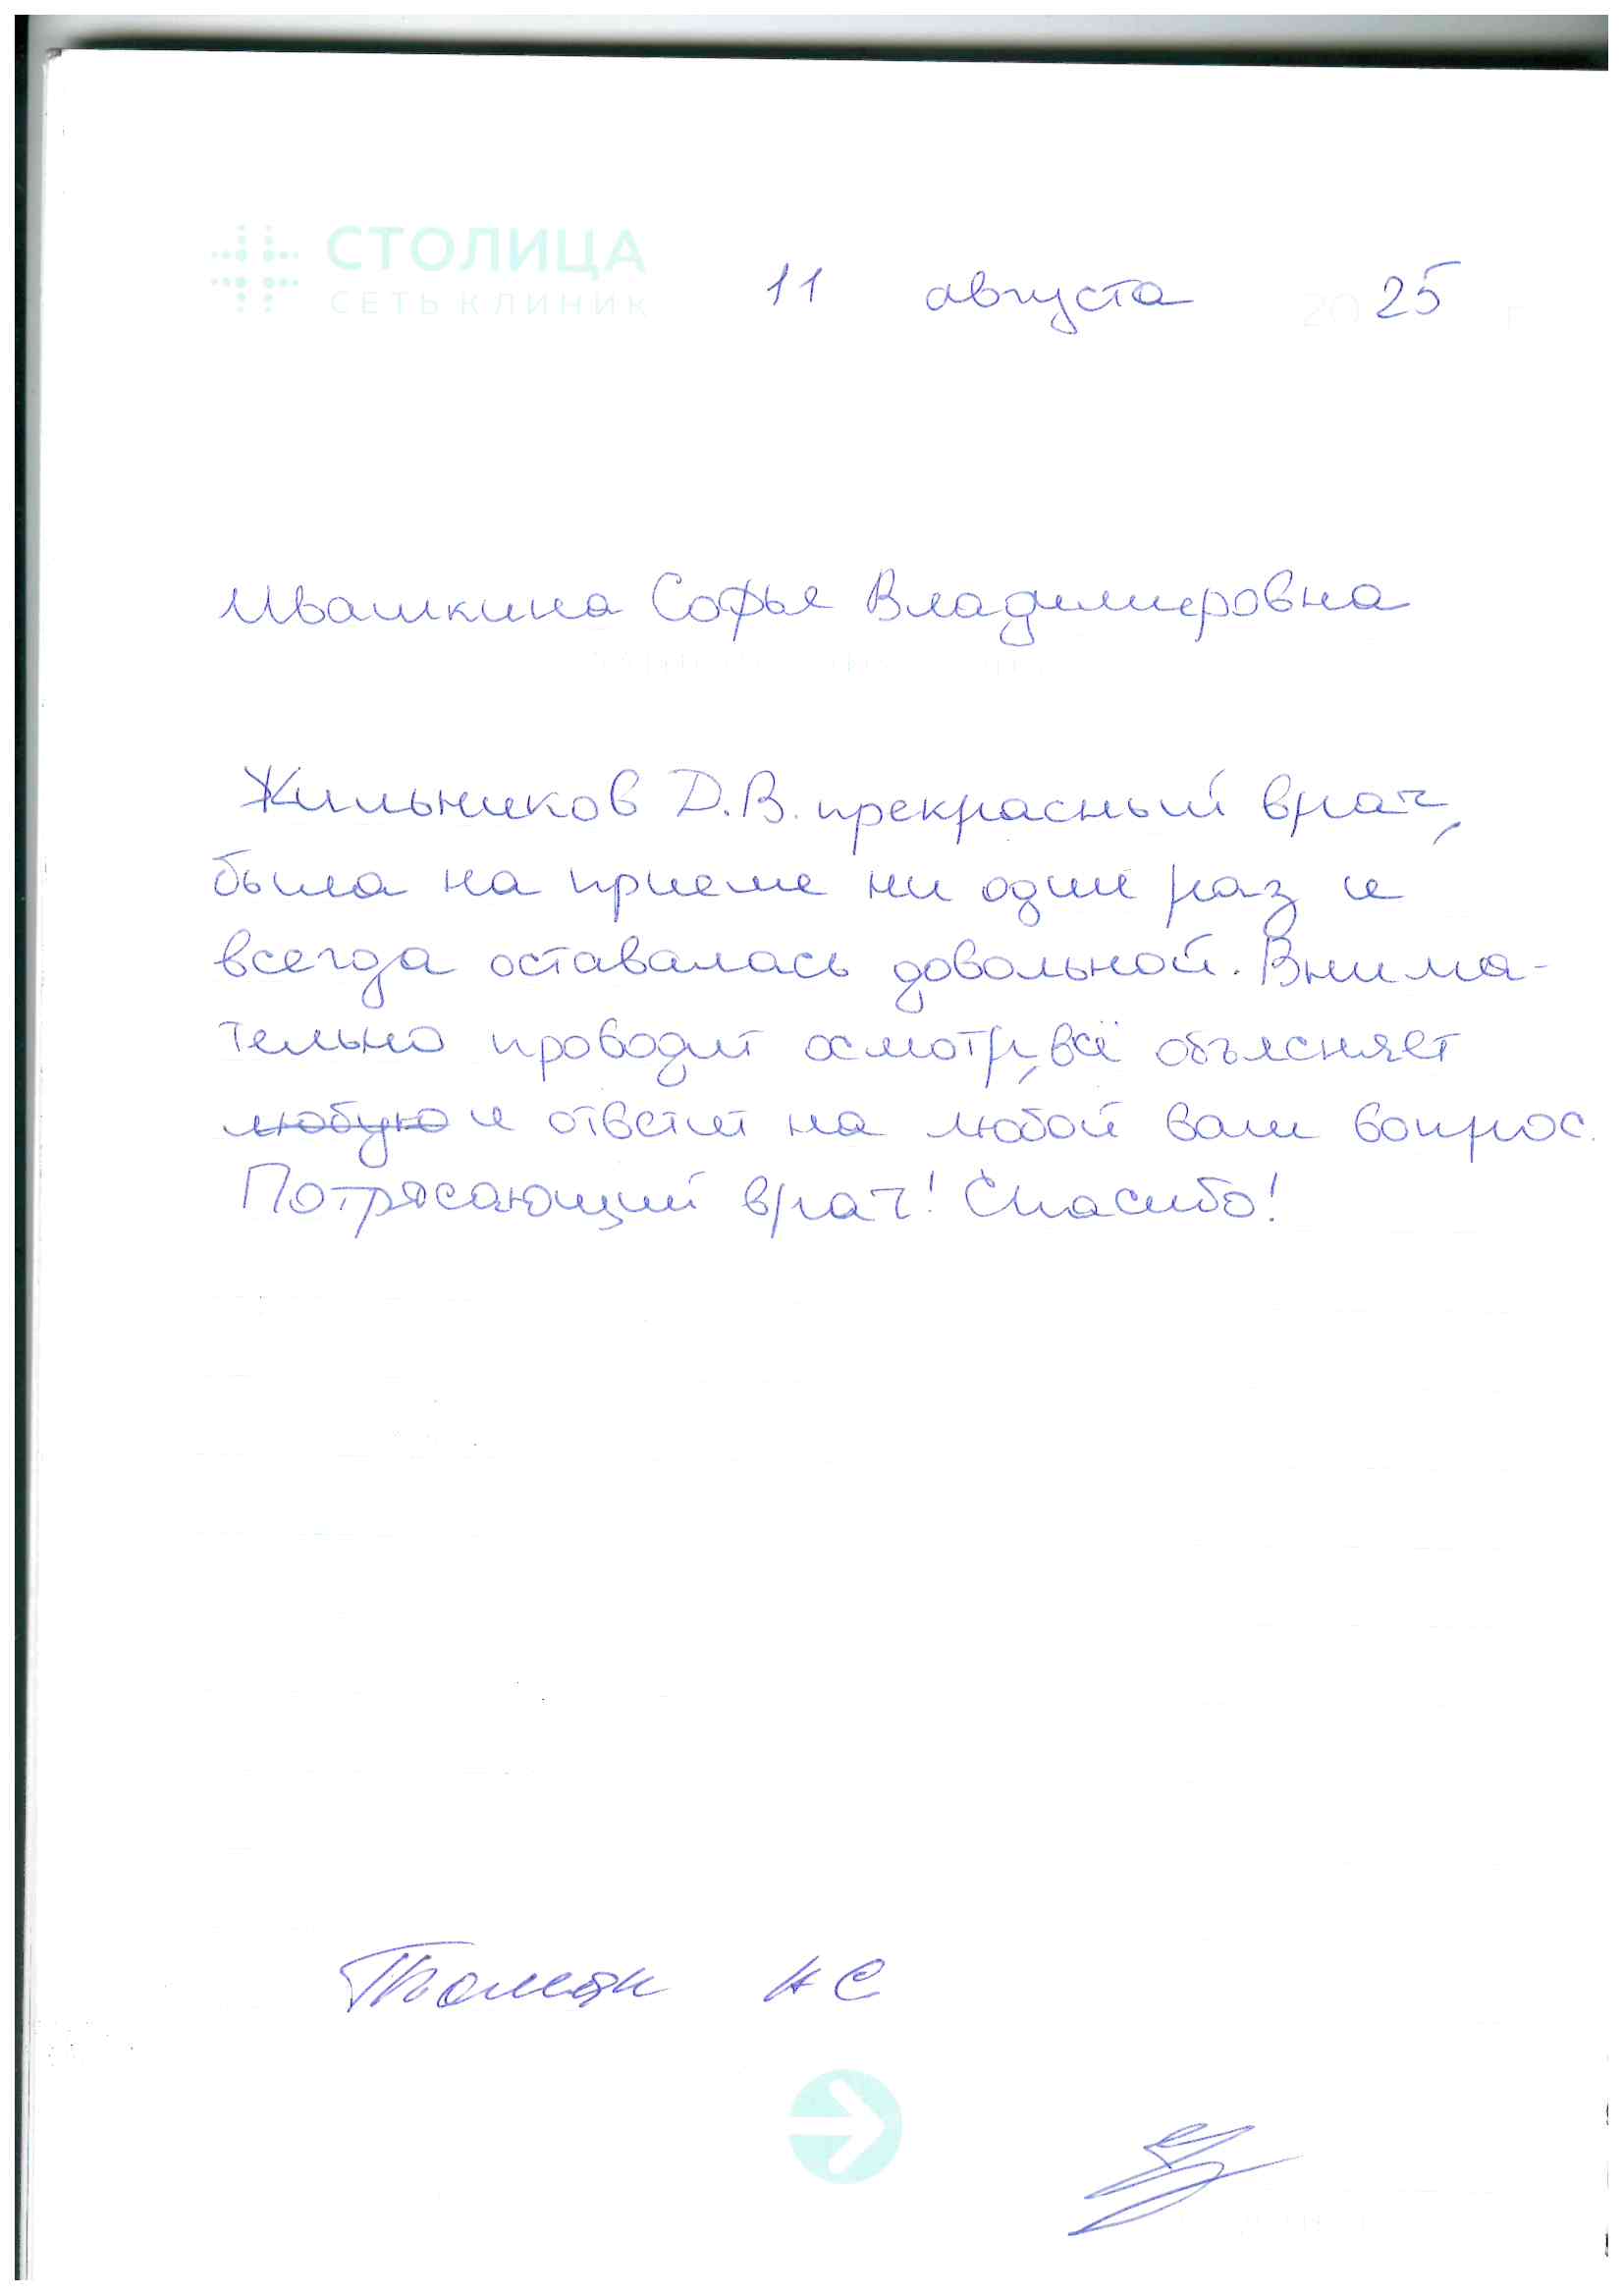 СТОЛИЦА
СЕТЬ КЛИНИК
11 августа 2025 г
Ивашкина Софья Владимировна
Жильников Д.В. прекрасный врач,
была на приеме ни один раз и
всегда оставалась довольной. Внима-
тельно проводит осмотр, всё объясняет
любую и ответит на любой ваш вопрос.
Потрясающий врач! Спасибо!